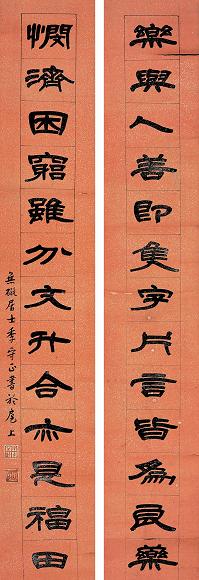 樂與人善即隻字片言皆為良藥
憫濟困窮雖分文升合亦是福田
無礙居士季守正書於滬上